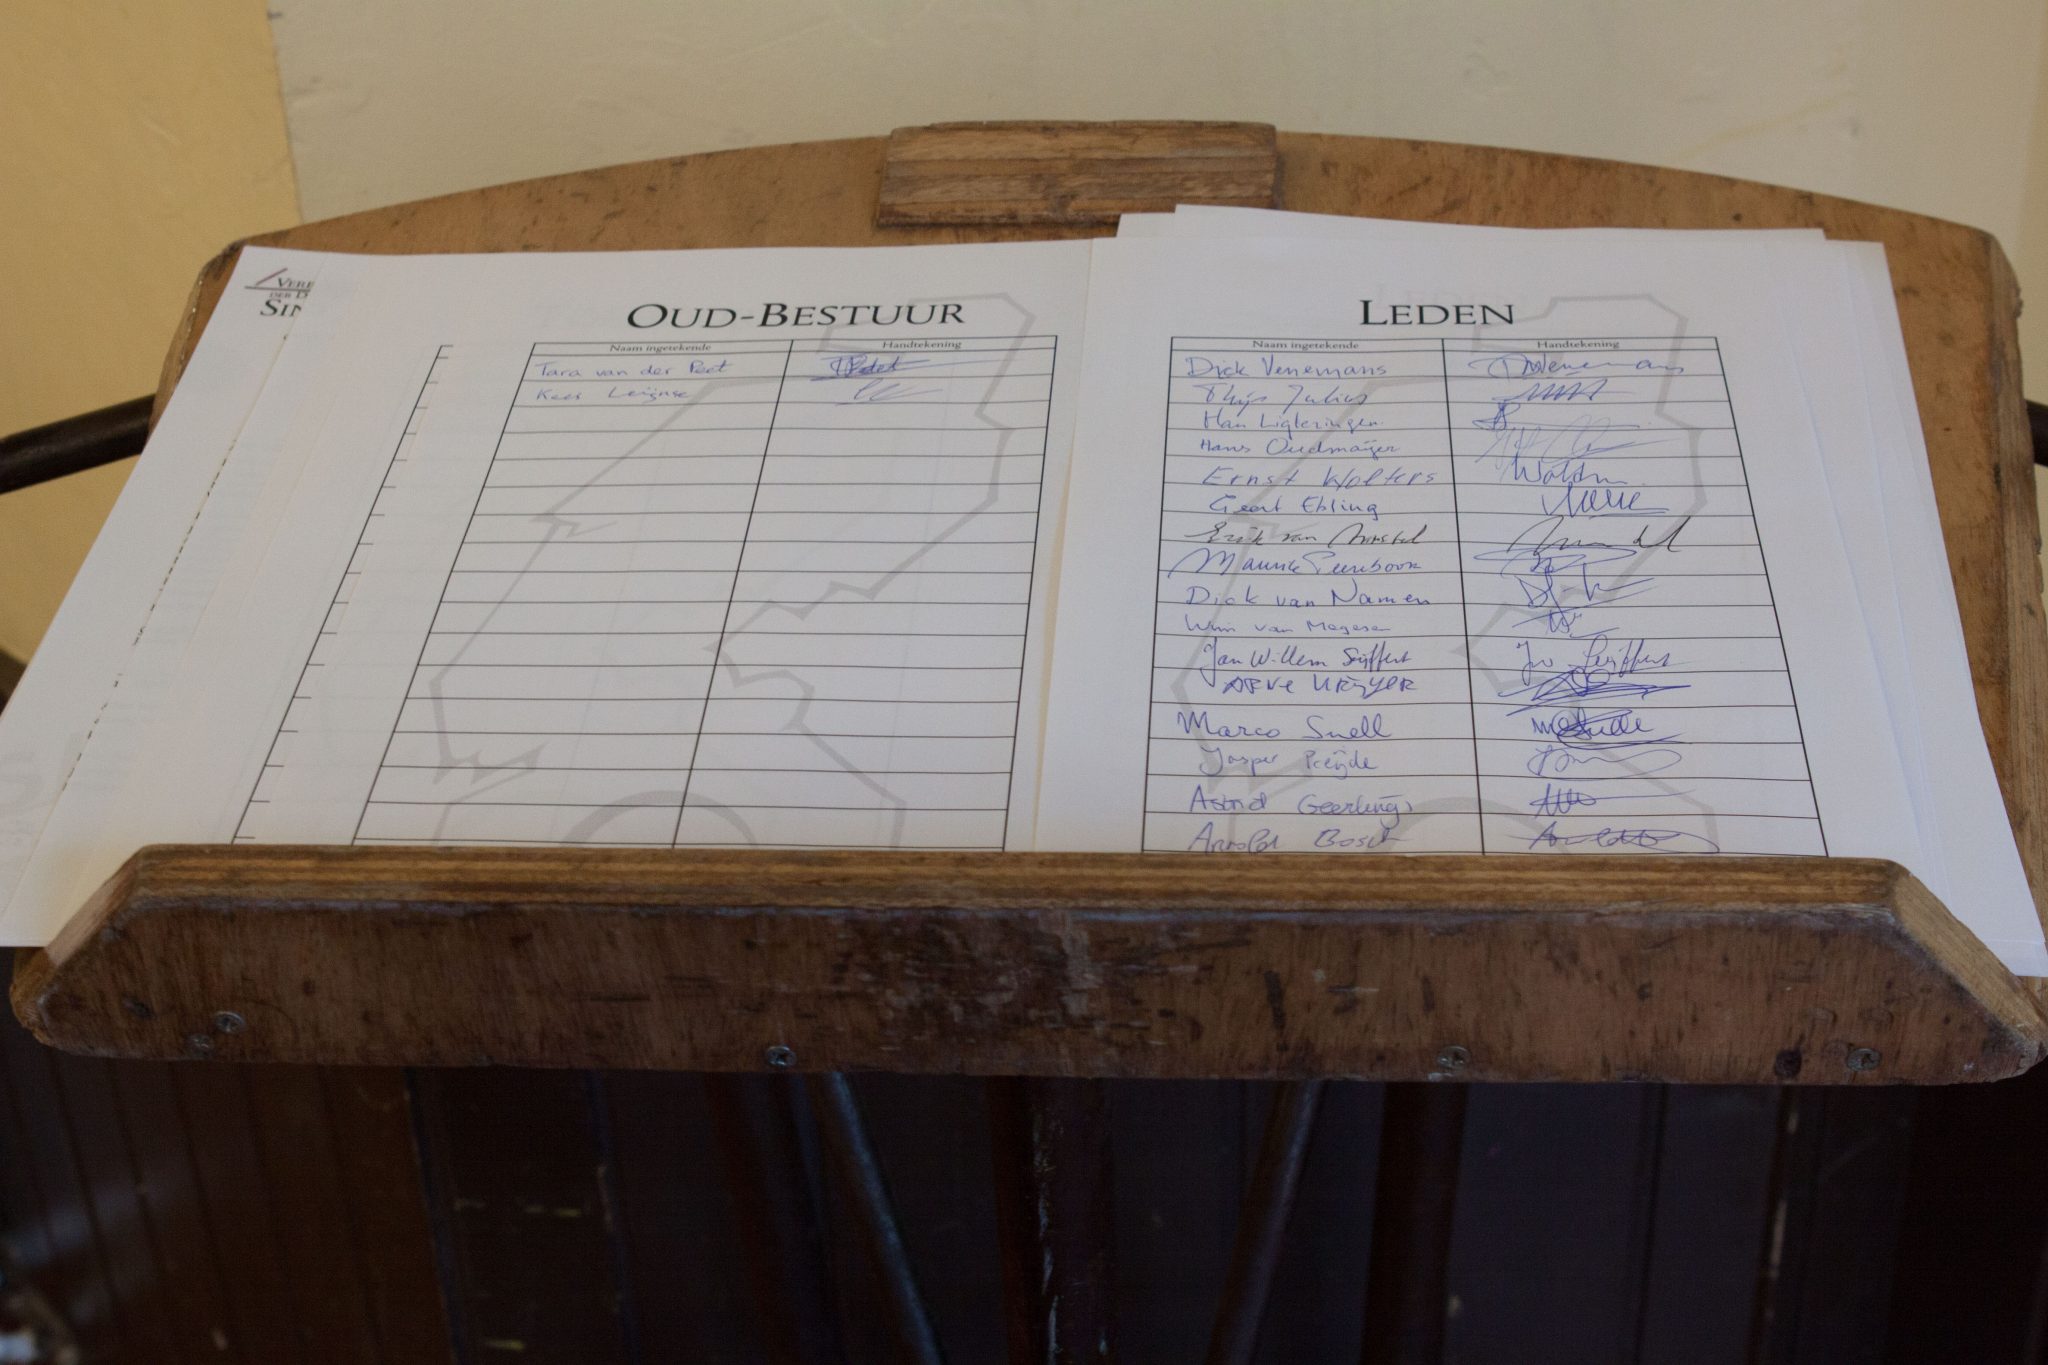 VERE
DER D
SIN
OUD-BESTUUR
Naam ingetekende Handtekening
Tara van der Peet
Kees Leijnse
LEDEN
Naam ingetekende Handtekening
Dick Venemans DVenemans
Thijs Julius
Han Ligteringen
Hans Oudmaijer
Ernst Wolters
Geert Ebling
Erik van Amstel
Maurice
Dick van Namen
Wim van Megesen
Jan Willem Seijffert JW Seijffert
Marco Snell
Jasper
Astrid Geerlings
Arnold Bosch